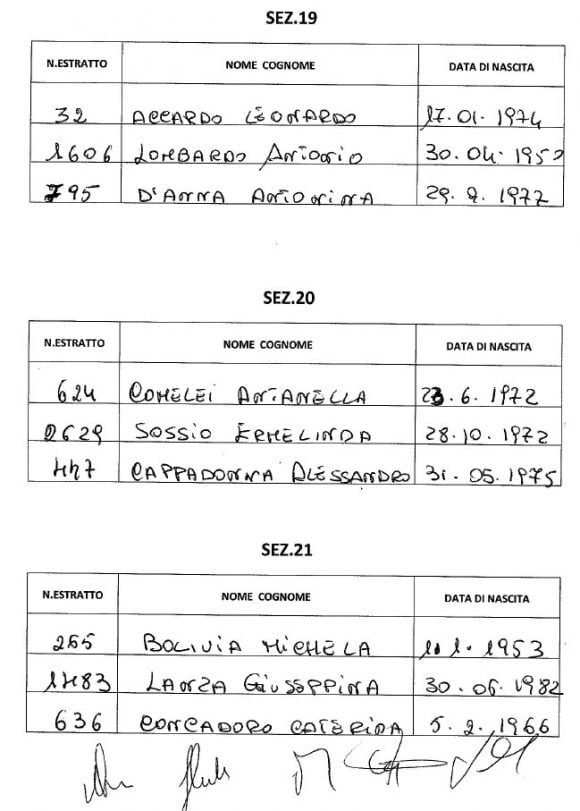 SEZ.19
N.ESTRATTO NOME COGNOME DATA DI NASCITA
32 ACCARDO LEONARDO 17.01.1974
1606 LOMBARDO ANTONIO 30.04.195
795 D'ANNA ANTONINA 29.9.1977
SEZ.20
N.ESTRATTO NOME COGNOME DATA DI NASCITA
624 COMELEI ANTANELLA 23.6.1972
2629 SOSSIO ERMELINDA 28.10.1972
447 CAPPADONNA ALESSANDRO 31.05.1975
SEZ.21
N.ESTRATTO NOME COGNOME DATA DI NASCITA
265 BOLIVIA MICHELA 1.1953
1483 LANZA GIUSEPPINA 30.05.1982
636 CONCADORO CATERINA 5.2.1966